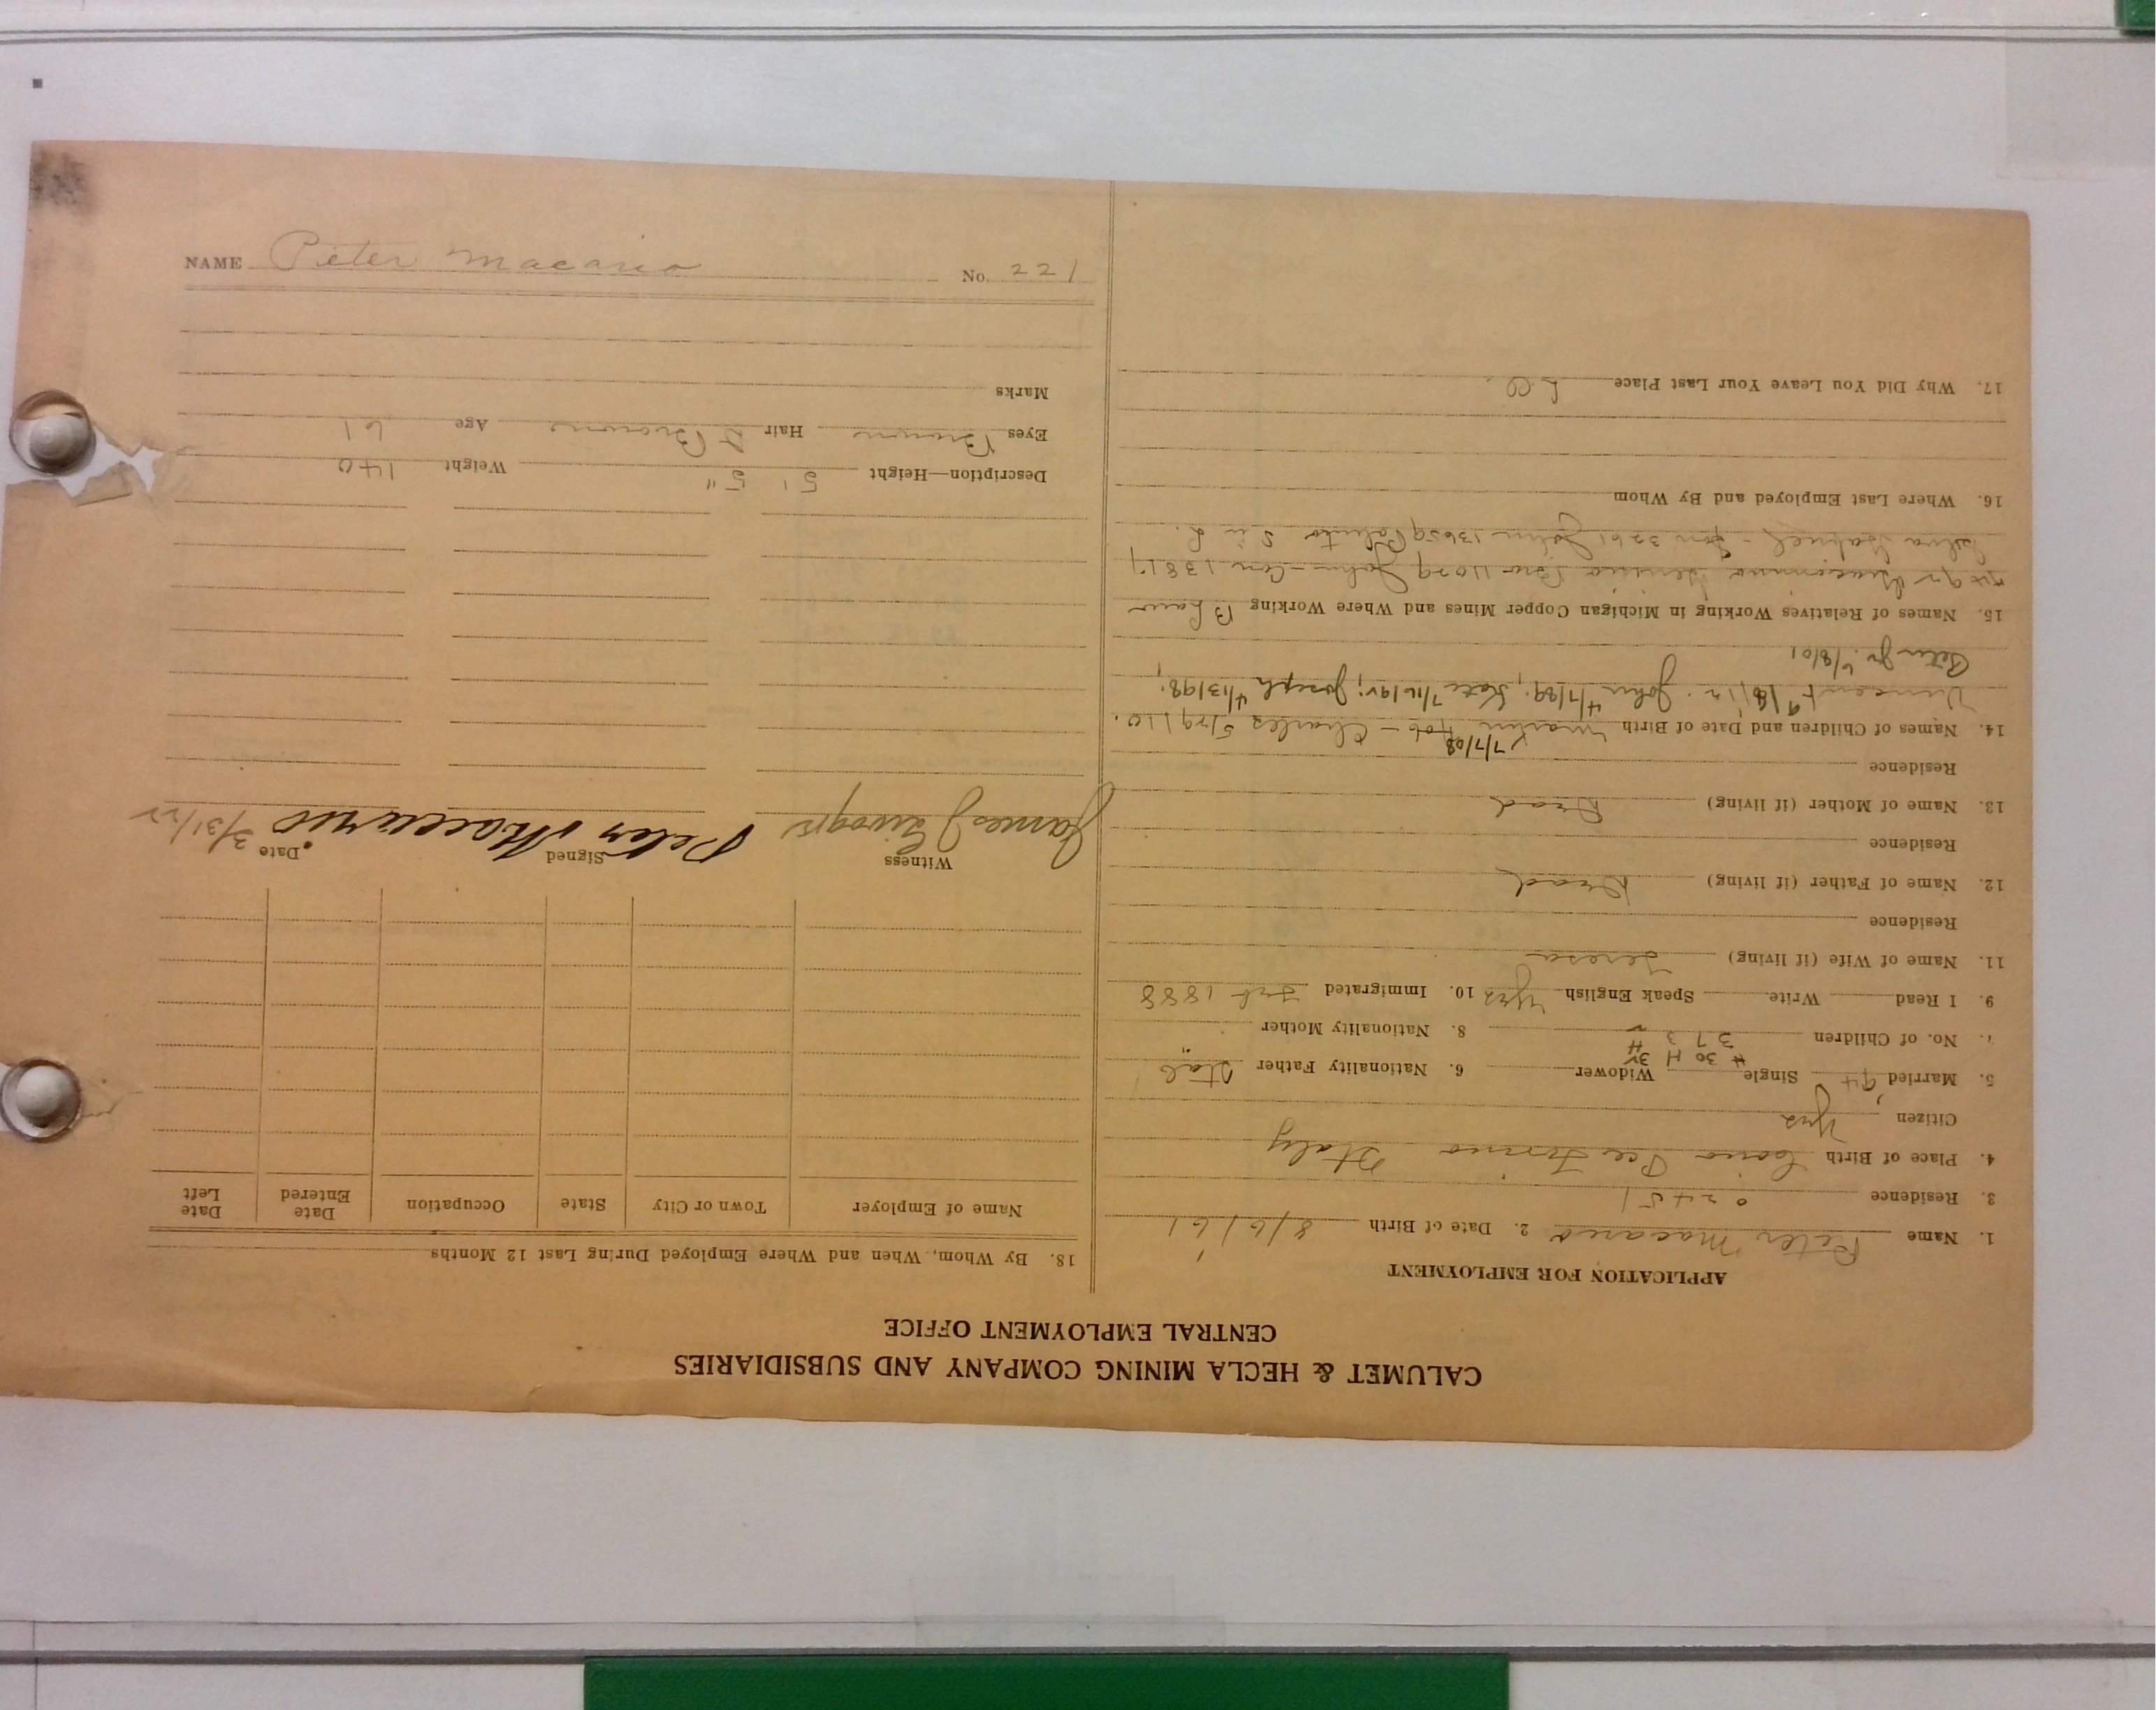 CALUMET & HECLA MINING COMPANY AND SUBSIDIARIES
CENTRAL EMPLOYMENT OFFICE
APPLICATION FOR EMPLOYMENT
1. Name Peter Macario 2. Date of Birth 8/6/61
3. Residence 02451
4. Place of Birth Italy
Citizen Yes
5. Married Single Widower 6. Nationality Father Ital
No. of Children 8. Nationality Mother "
9. I Read Write Speak English Yes 10. Immigrated 1888
11. Name of Wife (if living) Teresa
Residence
12. Name of Father (if living) Dead
Residence
13. Name of Mother (if living) Dead
Residence
7/7/08
14. Names of Children and Date of Birth Martin Charles 5/29/10.
Vincent 9/8/12. John 4/7/89; Kate 7/16/95; Joseph 4/13/98;
Peter Jr. 6/8/01
15. Names of Relatives Working in Michigan Copper Mines and Where Working B Law
John
John
16. Where Last Employed and By Whom
17. Why Did You Leave Your Last Place
18. By Whom, When and Where Employed During Last 12 Months
Name of Employer Town or City State Occupation Date Entered Date Left
Witness Signed Date
James Peter Maccario 3/31/22
Description—Height 5' 5" Weight 140
Eyes Brown Hair D Brown Age 61
Marks
NAME Peter Macario No. 221